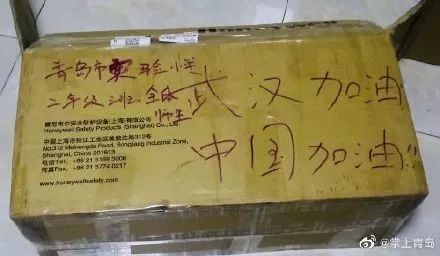 青岛市实验小学
二年级三班全体
师生
武汉加油
中国加油!!
霍尼韦尔安全防护设备(上海)有限公司
Honeywell Safety Products (Shanghai) Co., Ltd
中国上海市松江工业区
Songjiang Industrial Zone,
Shanghai, China 201613
电话Tel:
传真Fax:
www.honeywellsafety.com
@掌上青岛